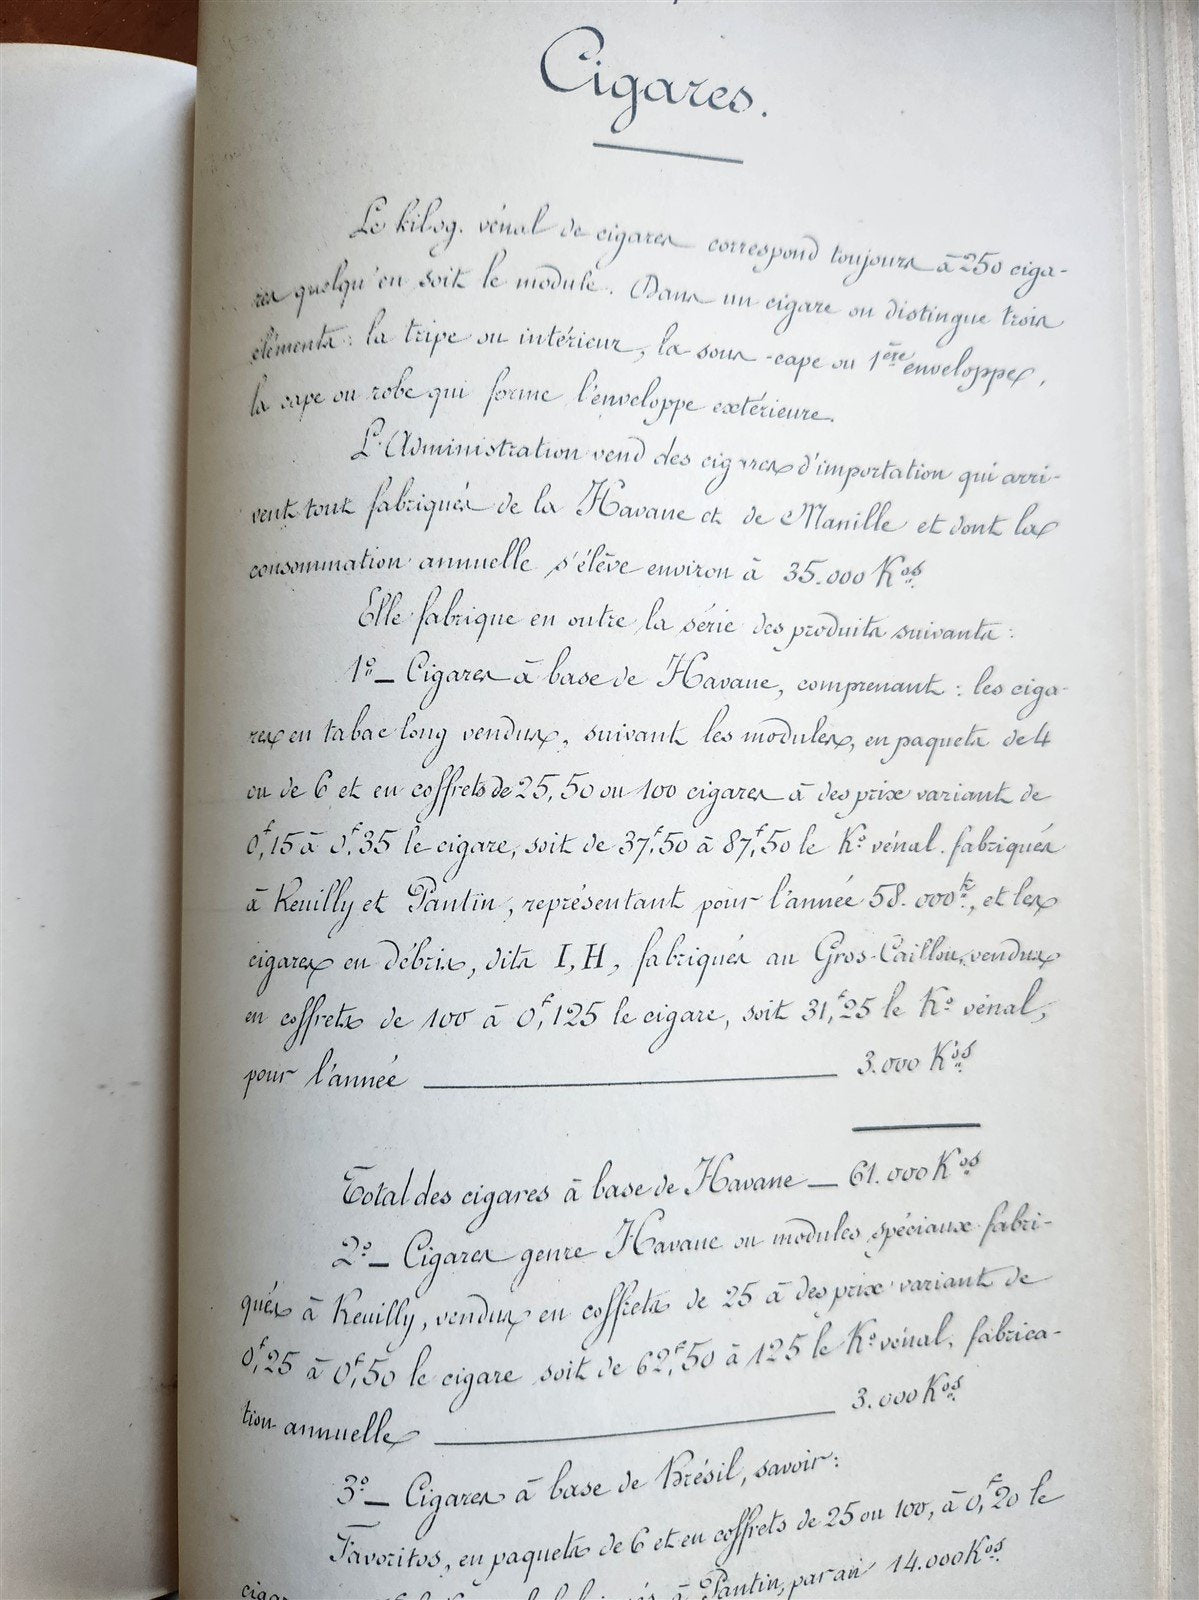 Cigares.
Le kilog. vénal de cigares correspond toujours à 250 ciga-
res quelqu'en soit le module. Dans un cigare on distingue trois
éléments : la tripe ou intérieur, la sous-cape ou 1ère enveloppe,
la cape ou robe qui forme l'enveloppe extérieure.
L'Administration vend des cigares d'importation qui arri-
vent tout fabriqués de la Havane et de Manille et dont la
consommation annuelle s'élève environ à 35.000 Kos
Elle fabrique en outre la série des produits suivants :
1o_ Cigares à base de Havane, comprenant : les ciga-
res en tabac long vendus, suivant les modules, en paquets de 4
ou de 6 et en coffrets de 25, 50 ou 100 cigares à des prix variant de
0f,15 à 0f,35 le cigare, soit de 37f,50 à 87f,50 le Ko vénal. fabriqués
à Reuilly et Pantin, représentant pour l'année 58.000k, et les
cigares en débris, dits I, H, fabriqués au Gros-Caillou, vendus
en coffrets de 100 à 0f,125 le cigare, soit 31f,25 le Ko vénal,
pour l'année 3.000 Kos
Total des cigares à base de Havane _ 61.000 Kos
2o_ Cigares genre Havane ou modules spéciaux fabri-
qués à Reuilly, vendus en coffrets de 25 à des prix variant de
0f,25 à 0f,50 le cigare soit de 62f,50 à 125 le Ko vénal, fabrica-
tion annuelle 3.000 Kos
3o_ Cigares à base de Brésil, savoir :
Favoritos, en paquets de 6 et en coffrets de 25 ou 100, à 0f,20 le
à Pantin, par an 14.000 Kos